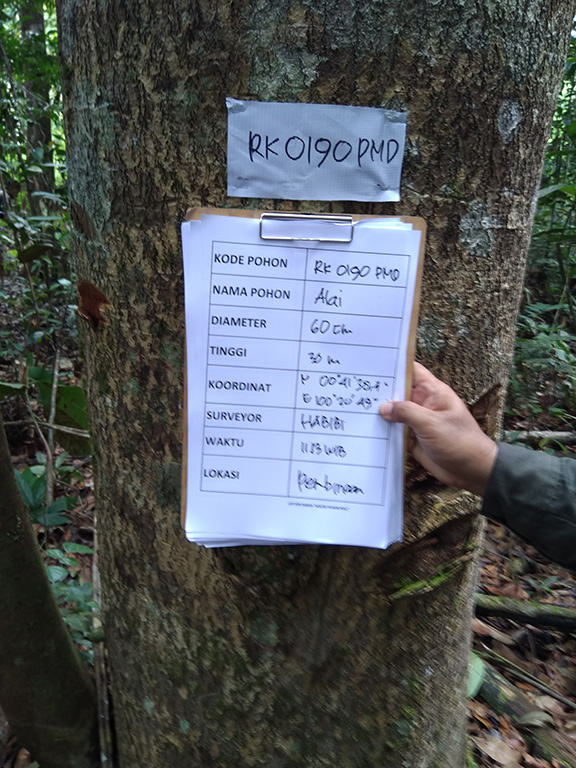 RK 0190 PMD
KODE POHON RK 0190 PMD
NAMA POHON Alai
DIAMETER 60 cm
TINGGI 30 m
KOORDINAT
E 100°20'49"
SURVEYOR HABIBI
WAKTU WIB
LOKASI